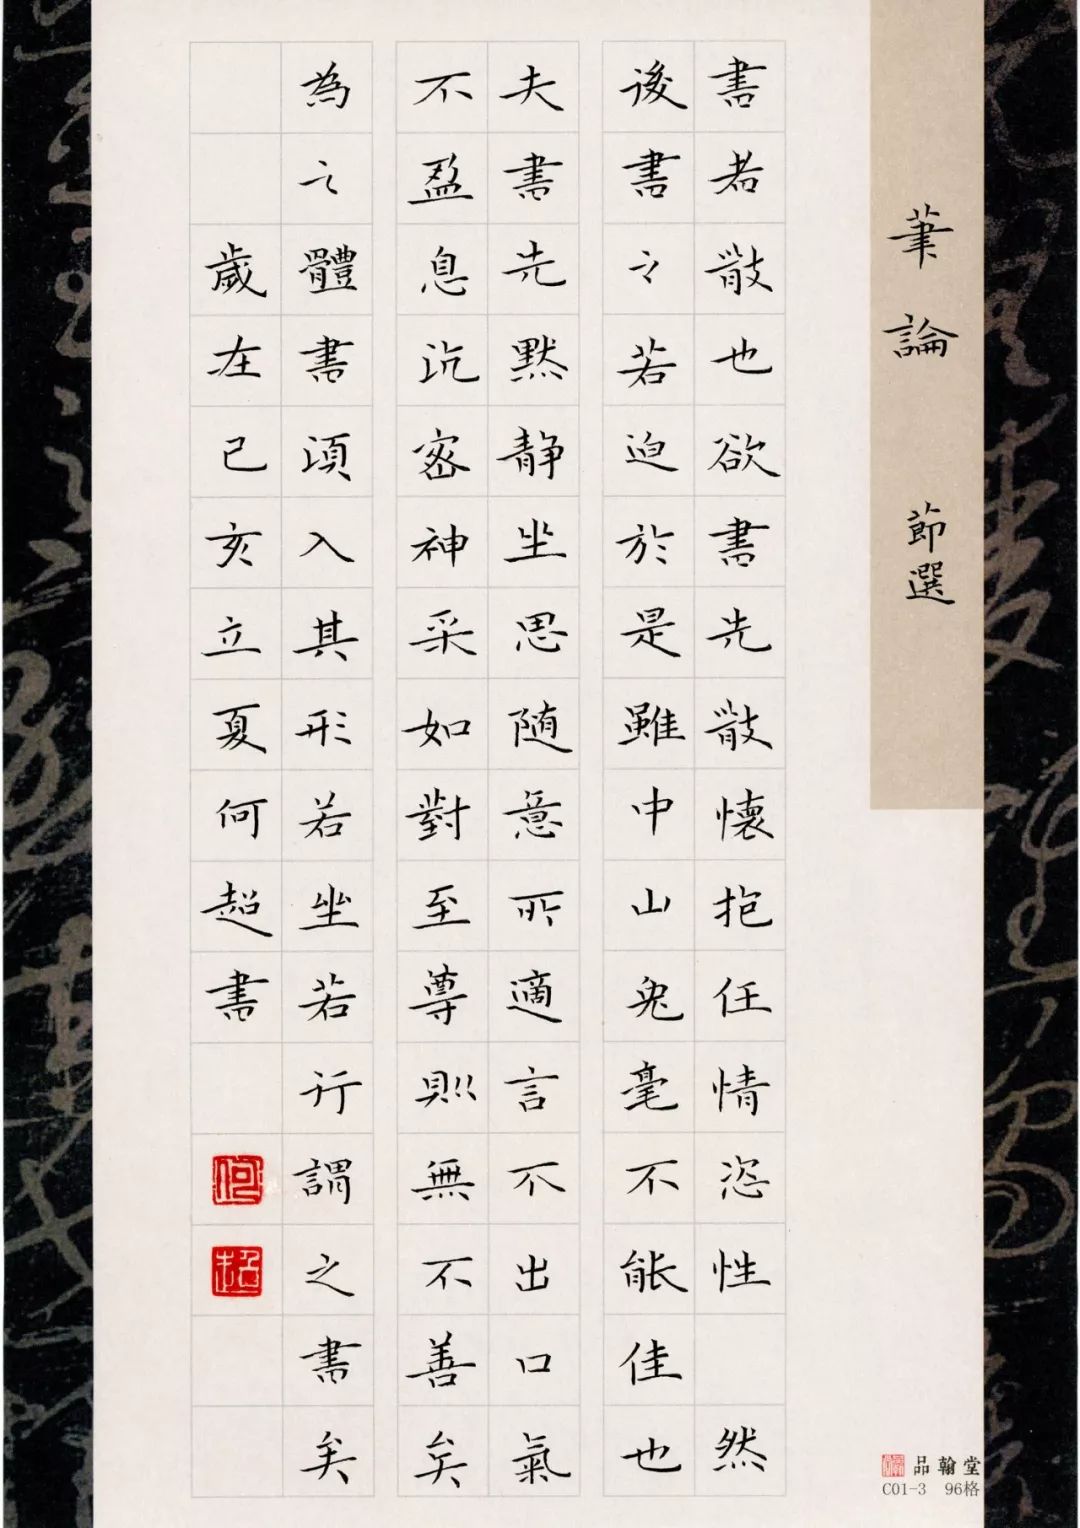 筆論 節選
書若散也欲書先散懷抱任情恣性 然
後書之若迫於是雖中山兔毫不能佳也
夫書先默静坐思随意所適言不出口氣
不盈息沉密神采如對至尊則無不善矣
為之體書須入其形若坐若行謂之書矣
歲在己亥立夏何超書
何
超
品翰堂
C01-3 96格